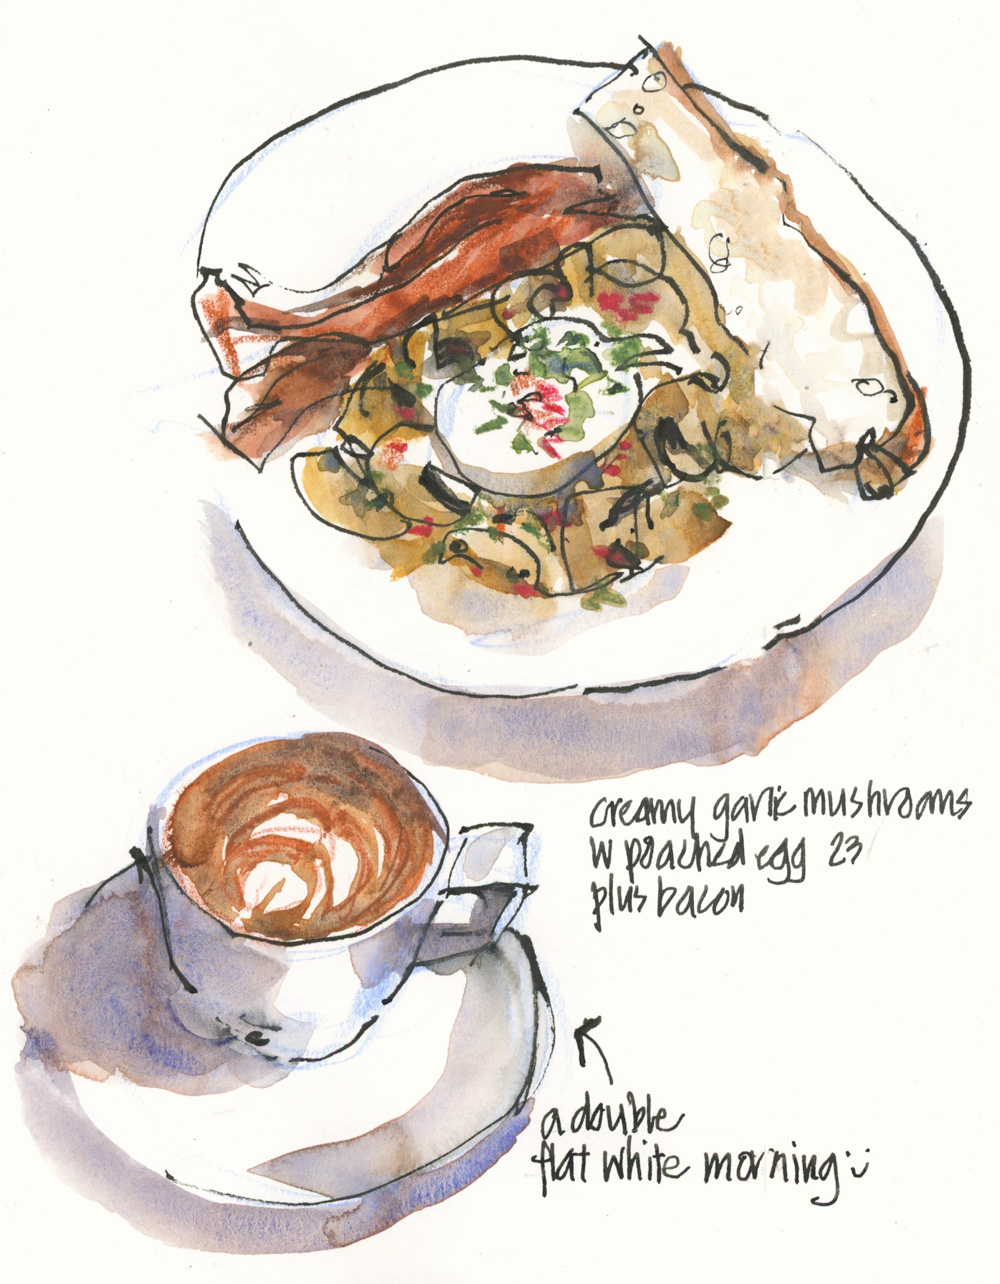 creamy garlic mushrooms
w poached egg 23
plus bacon
a double
flat white morning :)